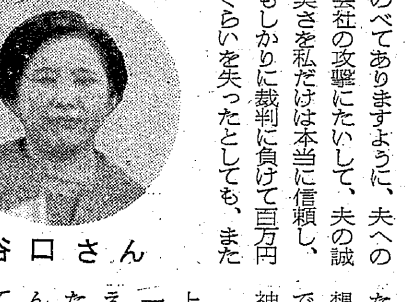 のべてありますように、夫への
会社の攻撃にたいして、夫の誠
実さを私だけは本当に信頼し、
もしかりに裁判に負けて百万円
くらいを失ったとしても、また
谷口さん